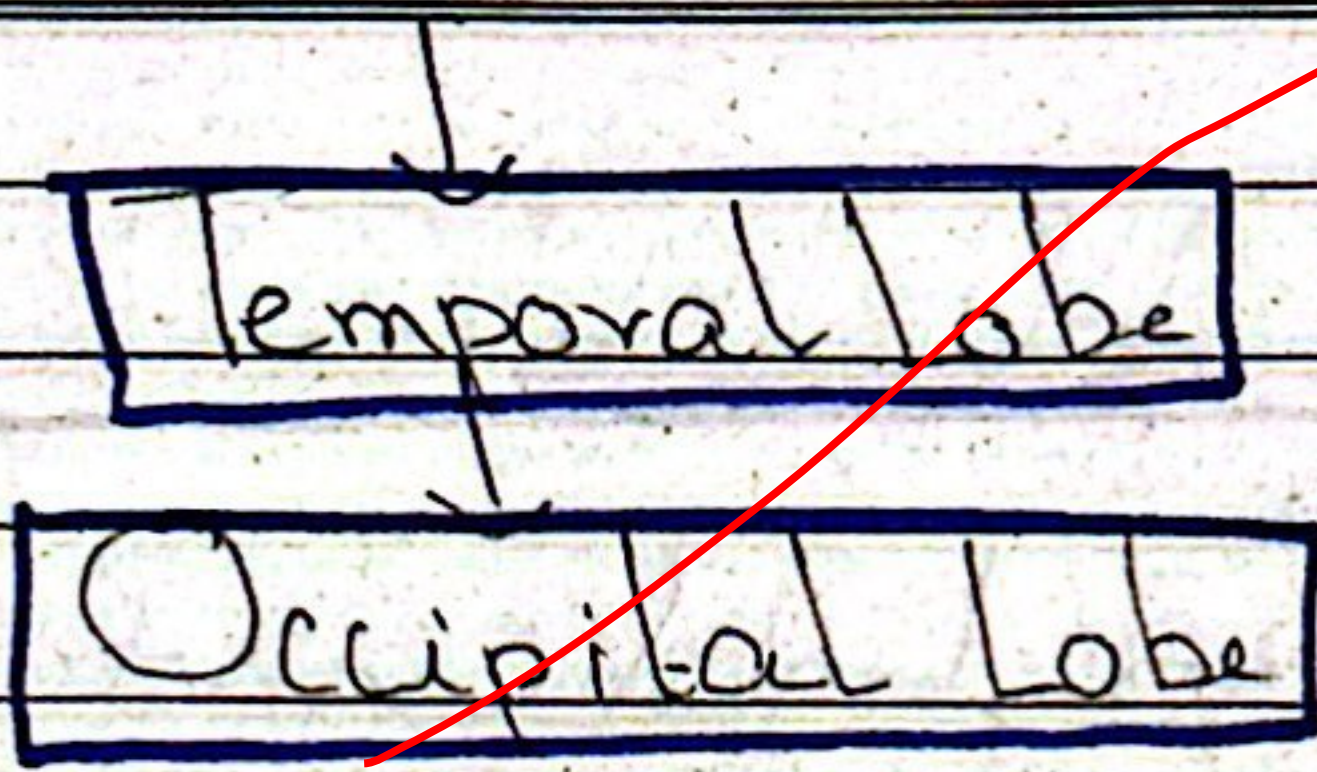 Temporal lobe
Occipital Lobe